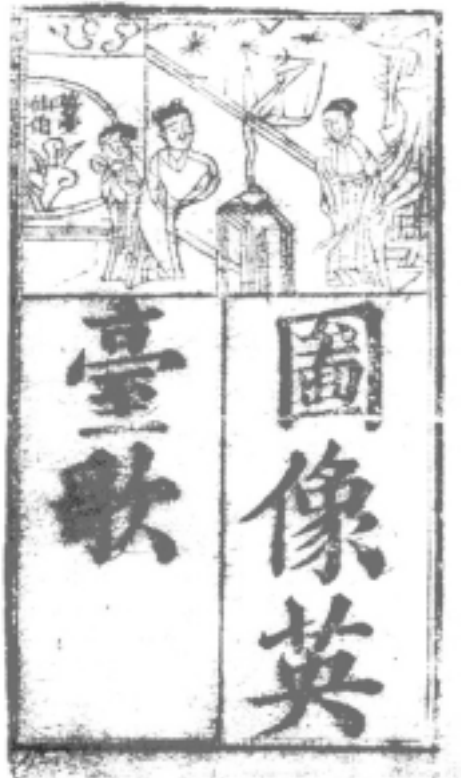 圖像英
臺歌